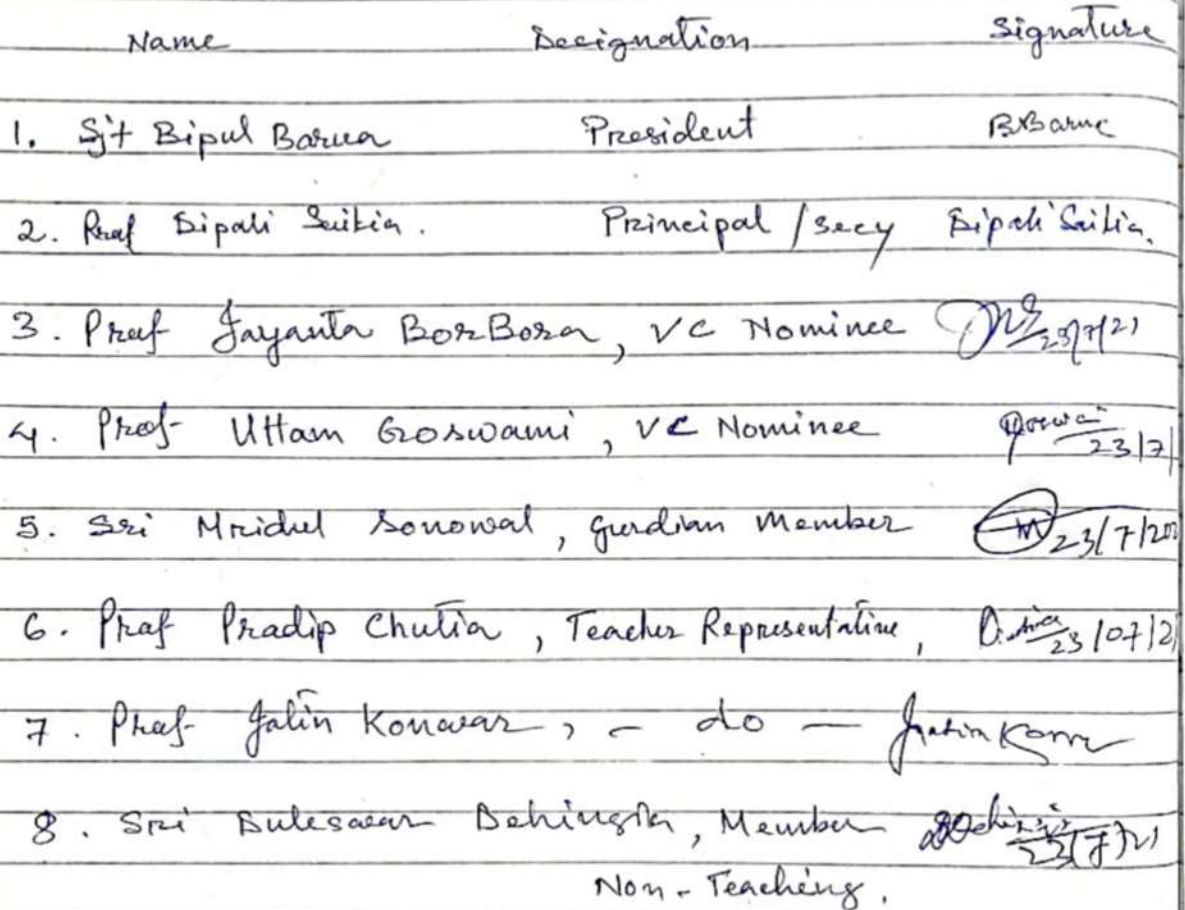 Name Designation Signature
1. Sjt Bipul Barua President BBarua
2. Prof Dipali Saikia. Principal / Secy Dipali Saikia.
3. Prof Jayanta BorBora, VC Nominee 23/7/21
4. Prof Uttam Goswami, VC Nominee 23/7/
5. Sri Mridul Sonowal, Gurdian Member 23/7/202
6. Prof Pradip Chutia, Teacher Representative, 23/07/2
7. Prof Jatin Konwar, - do - Jatin Konwr
8. Sri Buleswar Dehingia, Member 23/7/21
Non-Teaching.